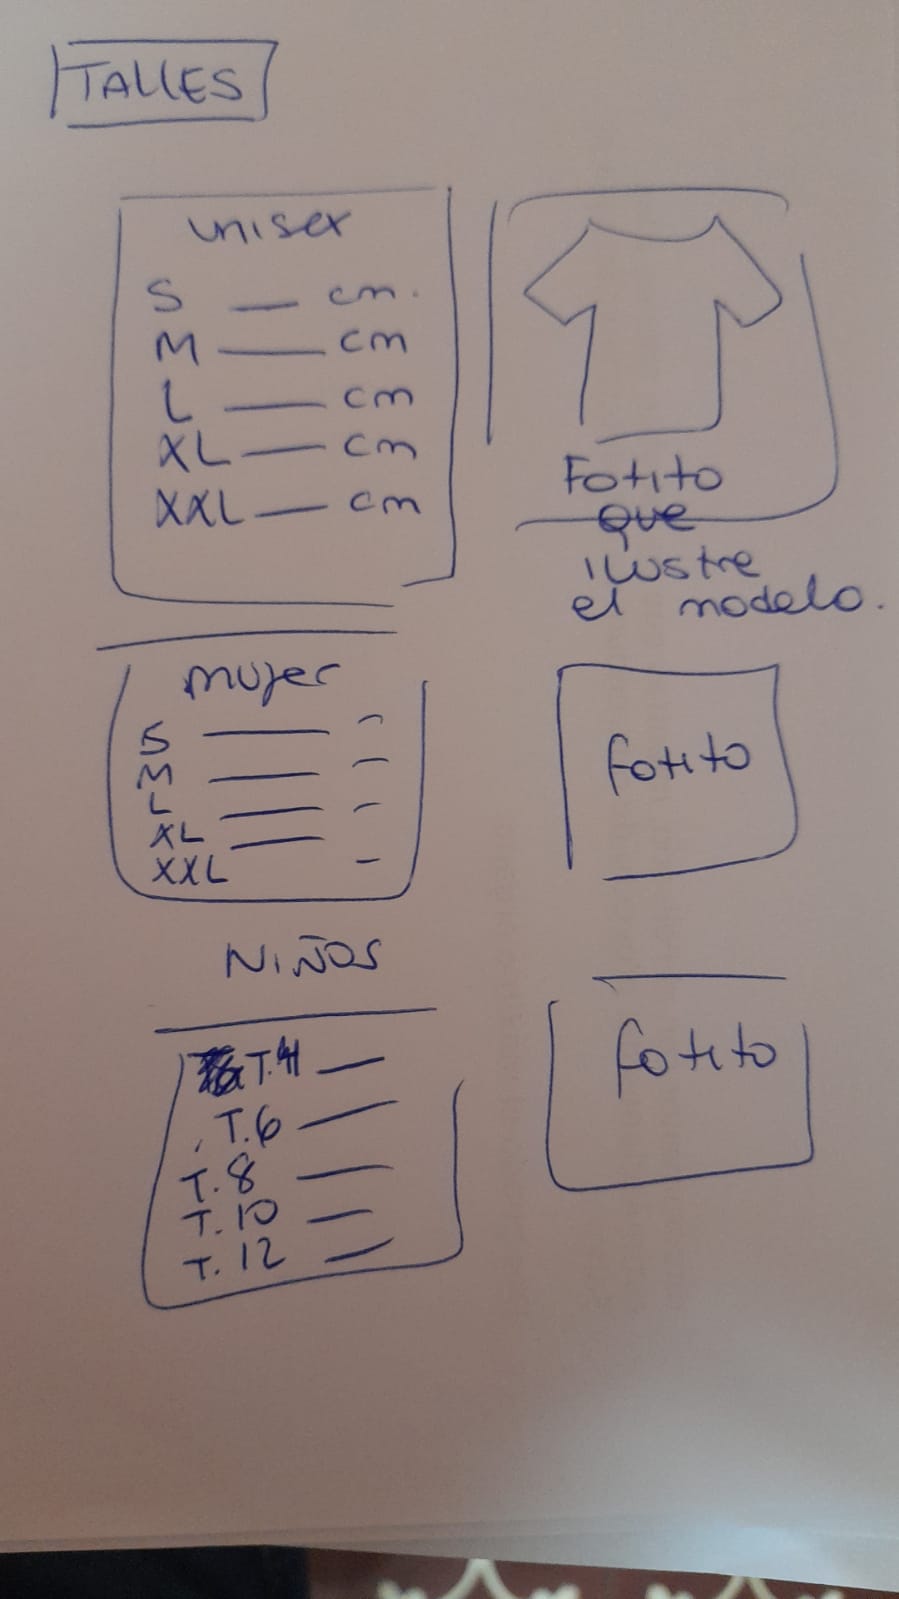 TALLES
unisex
S — cm.
M — cm
L — cm
XL — cm
XXL — cm
Fotito
que
ilustre
el modelo.
mujer
S — -
M — -
L — -
XL —
XXL -
fotito
NIÑOS
T.4 —
T.6 —
T.8 —
T.10 —
T.12 —
fotito